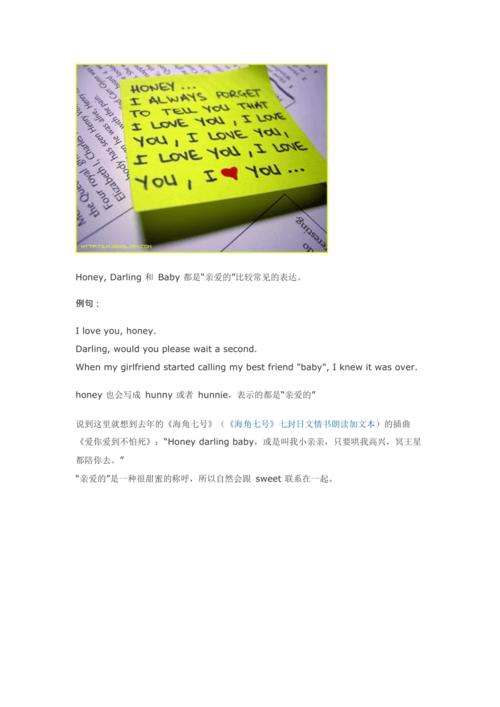 HONEY...
I ALWAYS FORGET
TO TELL YOU THAT
I LOVE YOU, I LOVE
YOU, I LOVE YOU,
I LOVE YOU, I LOVE
YOU, I ❤ YOU...
Honey, Darling 和 Baby 都是“亲爱的”比较常见的表达。
例句：
I love you, honey.
Darling, would you please wait a second.
When my girlfriend started calling my best friend "baby", I knew it was over.
honey 也会写成 hunny 或者 hunnie，表示的都是“亲爱的”
说到这里就想到去年的《海角七号》（《海角七号》七封日文情书朗读加文本）的插曲
《爱你爱到不怕死》：“Honey darling baby，或是叫我小亲亲，只要哄我高兴，冥王星
都陪你去。”
“亲爱的”是一种很甜蜜的称呼，所以自然会跟 sweet 联系在一起。